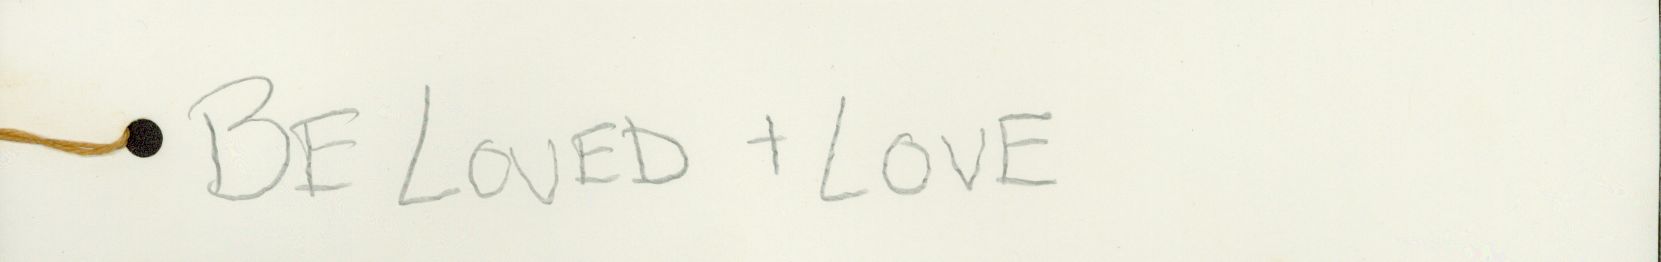 BE LOVED + LOVE